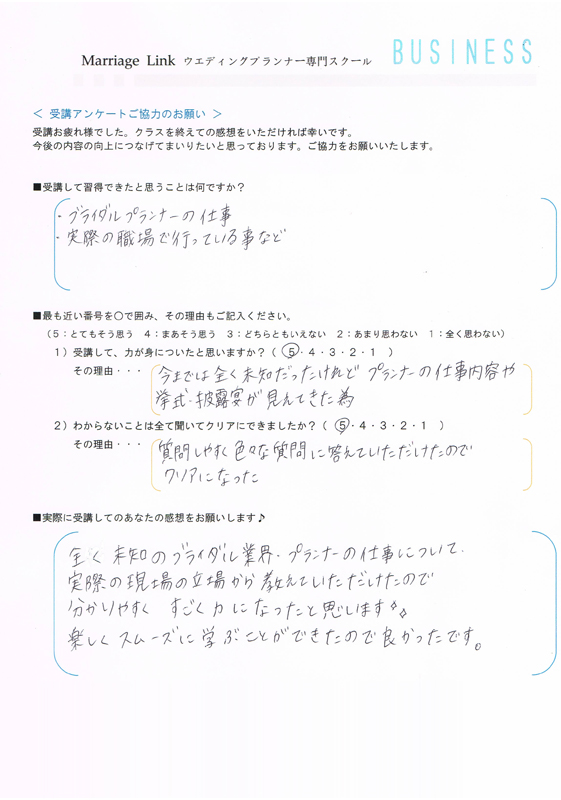 Marriage Link ウエディングプランナー専門スクール BUSINESS
＜ 受講アンケートご協力のお願い ＞
受講お疲れ様でした。クラスを終えての感想をいただければ幸いです。
今後の内容の向上につなげてまいりたいと思っております。ご協力をお願いいたします。
■受講して習得できたと思うことは何ですか？
・ブライダルプランナーの仕事
・実際の職場で行っている事など
■最も近い番号を○で囲み、その理由もご記入ください。
（5：とてもそう思う 4：まあそう思う 3：どちらともいえない 2：あまり思わない 1：全く思わない）
1）受講して、力が身についたと思いますか？（ 5・4・3・2・1 ）
その理由・・・ 今までは全く未知だったけれど プランナーの仕事内容や
挙式・披露宴が見えてきた為
2）わからないことは全て聞いてクリアにできましたか？（ 5・4・3・2・1 ）
その理由・・・ 質問しやすく色々な質問に答えていただけたので
クリアになった
■実際に受講してのあなたの感想をお願いします♪
全く未知のブライダル業界・プランナーの仕事について、
実際の現場の立場から教えていただけたので
分かりやすく すごく力になったと思います
楽しくスムーズに学ぶことができたので良かったです。